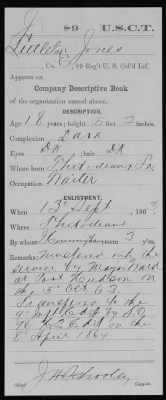 J | 89 | U.S.C.T.
Littleton Jones
, Co. E, 89 Reg't U. S. Col'd Inf.
Appears on
Company Descriptive Book
of the organization named above.
DESCRIPTION.
Age 18 years; height 5 feet 3 inches.
Complexion Dark
Eyes Dk ; hair Dk
Where born Thibodeaux, La
Occupation Waiter
ENLISTMENT.
When 13 Sept , 1863
Where Thibodeaux
By whom Cunningham ; term 3 y'rs.
Remarks: Mustered into the
service by Major Ward
at Port Hudson on
Oct 63
Transferred to the
by S.O.
on the
8 Apr 1864
Copyist.